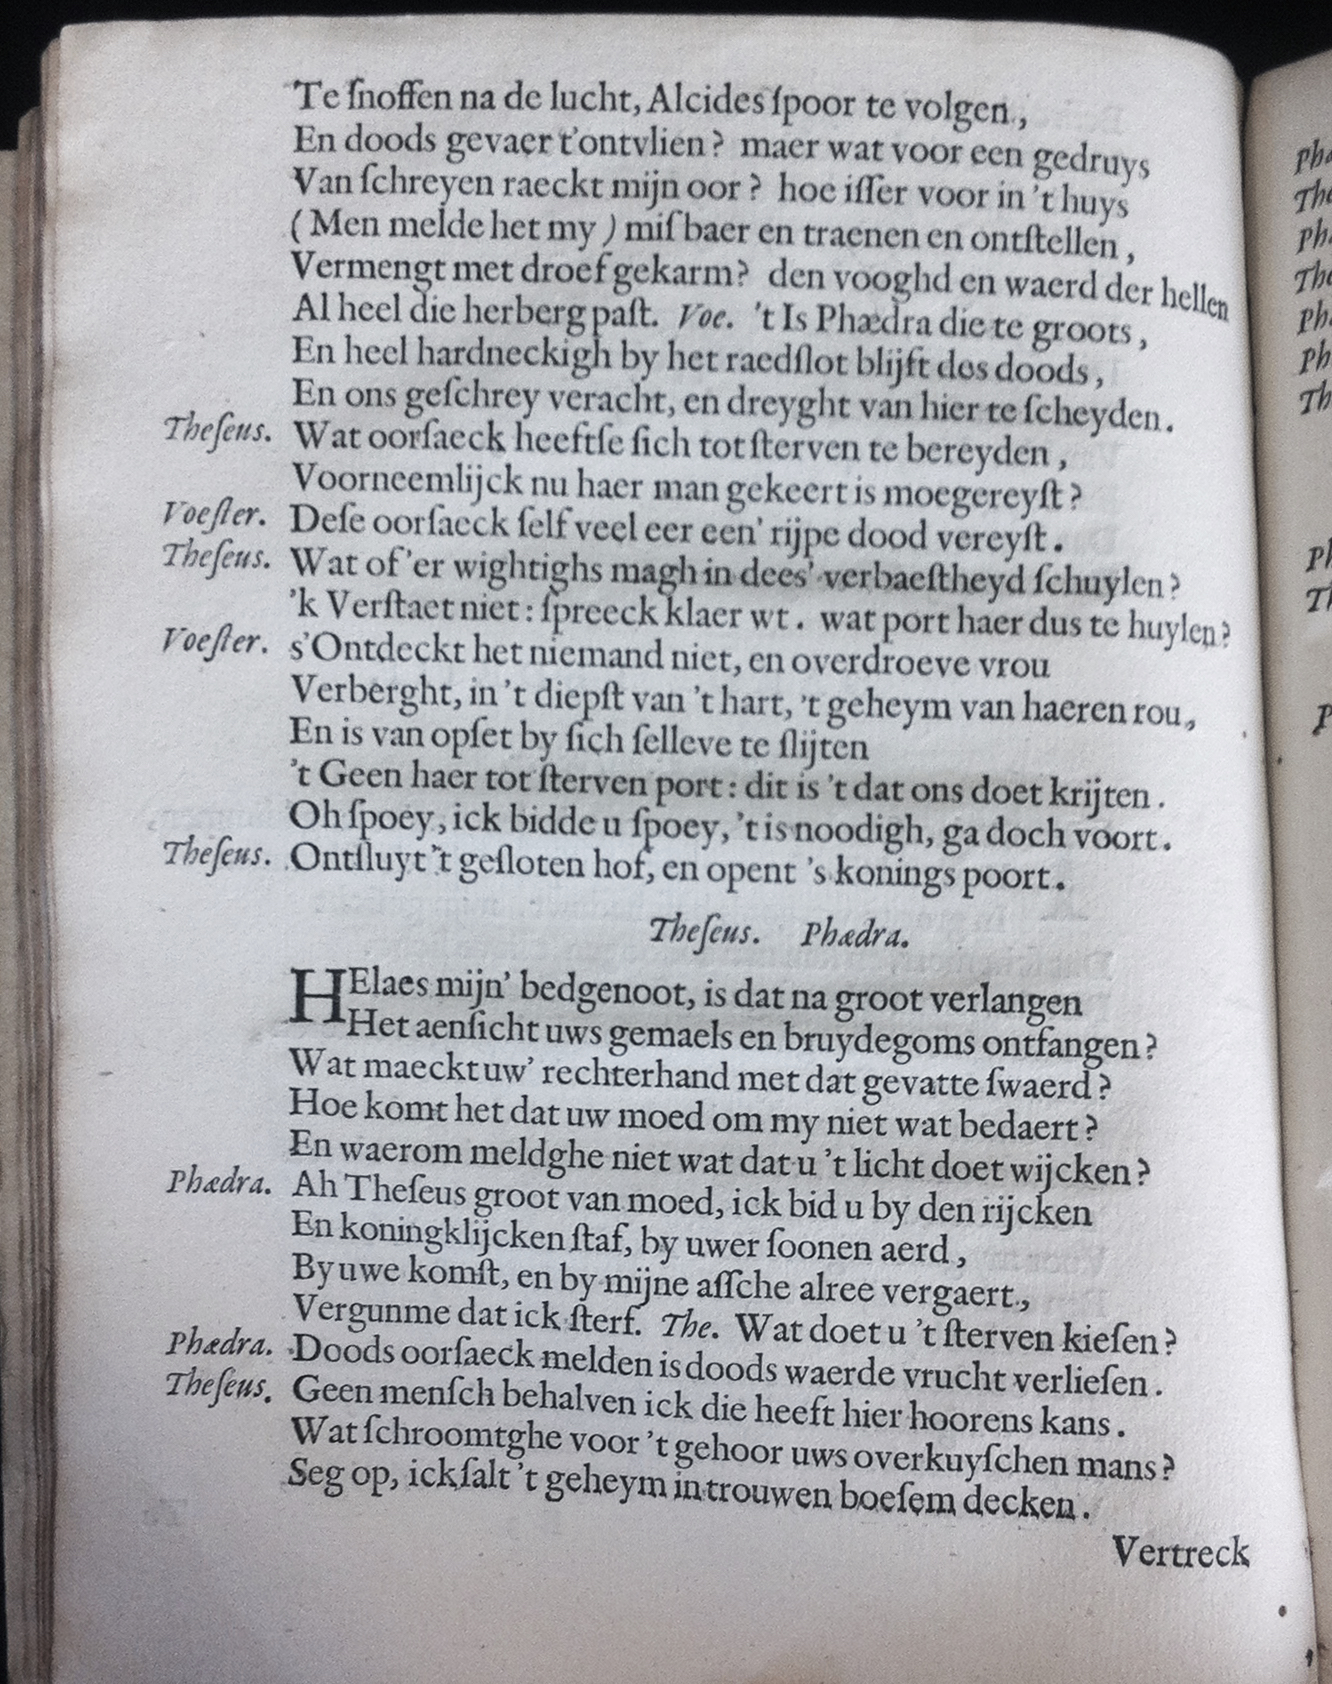 Te ſnoffen na de lucht, Alcides ſpoor te volgen,
En doods gevaer t'ontvlien? maer wat voor een gedruys
Van ſchreyen raeckt mijn oor? hoe iſſer voor in 't huys
(Men melde het my) miſbaer en traenen en ontſtellen,
Vermengt met droef gekarm? den vooghd en waerd der hellen
Al heel die herberg paſt. Voe. 't Is Phædra die te groots,
En heel hardneckigh by het raedſlot blijft des doods,
En ons geſchrey veracht, en dreyght van hier te ſcheyden.
Theſeus. Wat oorſaeck heeftſe ſich tot ſterven te bereyden,
Voorneemlijck nu haer man gekeert is moegereyſt?
Voeſter. Deſe oorſaeck ſelf veel eer een' rijpe dood vereyſt.
Theſeus. Wat of 'er wightighs magh in dees' verbaeſtheyd ſchuylen?
'k Verſtaet niet: ſpreeck klaer wt. wat port haer dus te huylen?
Voeſter. s'Ontdeckt het niemand niet, en overdroeve vrou
Verberght, in 't diepſt van 't hart, 't geheym van haeren rou,
En is van opſet by ſich ſelleve te ſlijten
't Geen haer tot ſterven port: dit is 't dat ons doet krijten.
Oh ſpoey, ick bidde u ſpoey, 't is noodigh, ga doch voort.
Theſeus. Ontſluyt 't geſloten hof, en opent 's konings poort.
Theſeus. Phædra.
HElaes mijn' bedgenoot, is dat na groot verlangen
Het aenſicht uws gemaels en bruydegoms ontfangen?
Wat maeckt uw' rechterhand met dat gevatte ſwaerd?
Hoe komt het dat uw moed om my niet wat bedaert?
En waerom meldghe niet wat dat u 't licht doet wijcken?
Phædra. Ah Theſeus groot van moed, ick bid u by den rijcken
En koningklijcken ſtaf, by uwer ſoonen aerd,
By uwe komſt, en by mijne aſſche alree vergaert,
Vergunme dat ick ſterf. The. Wat doet u 't ſterven kieſen?
Phædra. Doods oorſaeck melden is doods waerde vrucht verlieſen.
Theſeus. Geen menſch behalven ick die heeft hier hoorens kans.
Wat ſchroomtghe voor 't gehoor uws overkuyſchen mans?
Seg op, ick ſalt 't geheym in trouwen boeſem decken.
Vertreck